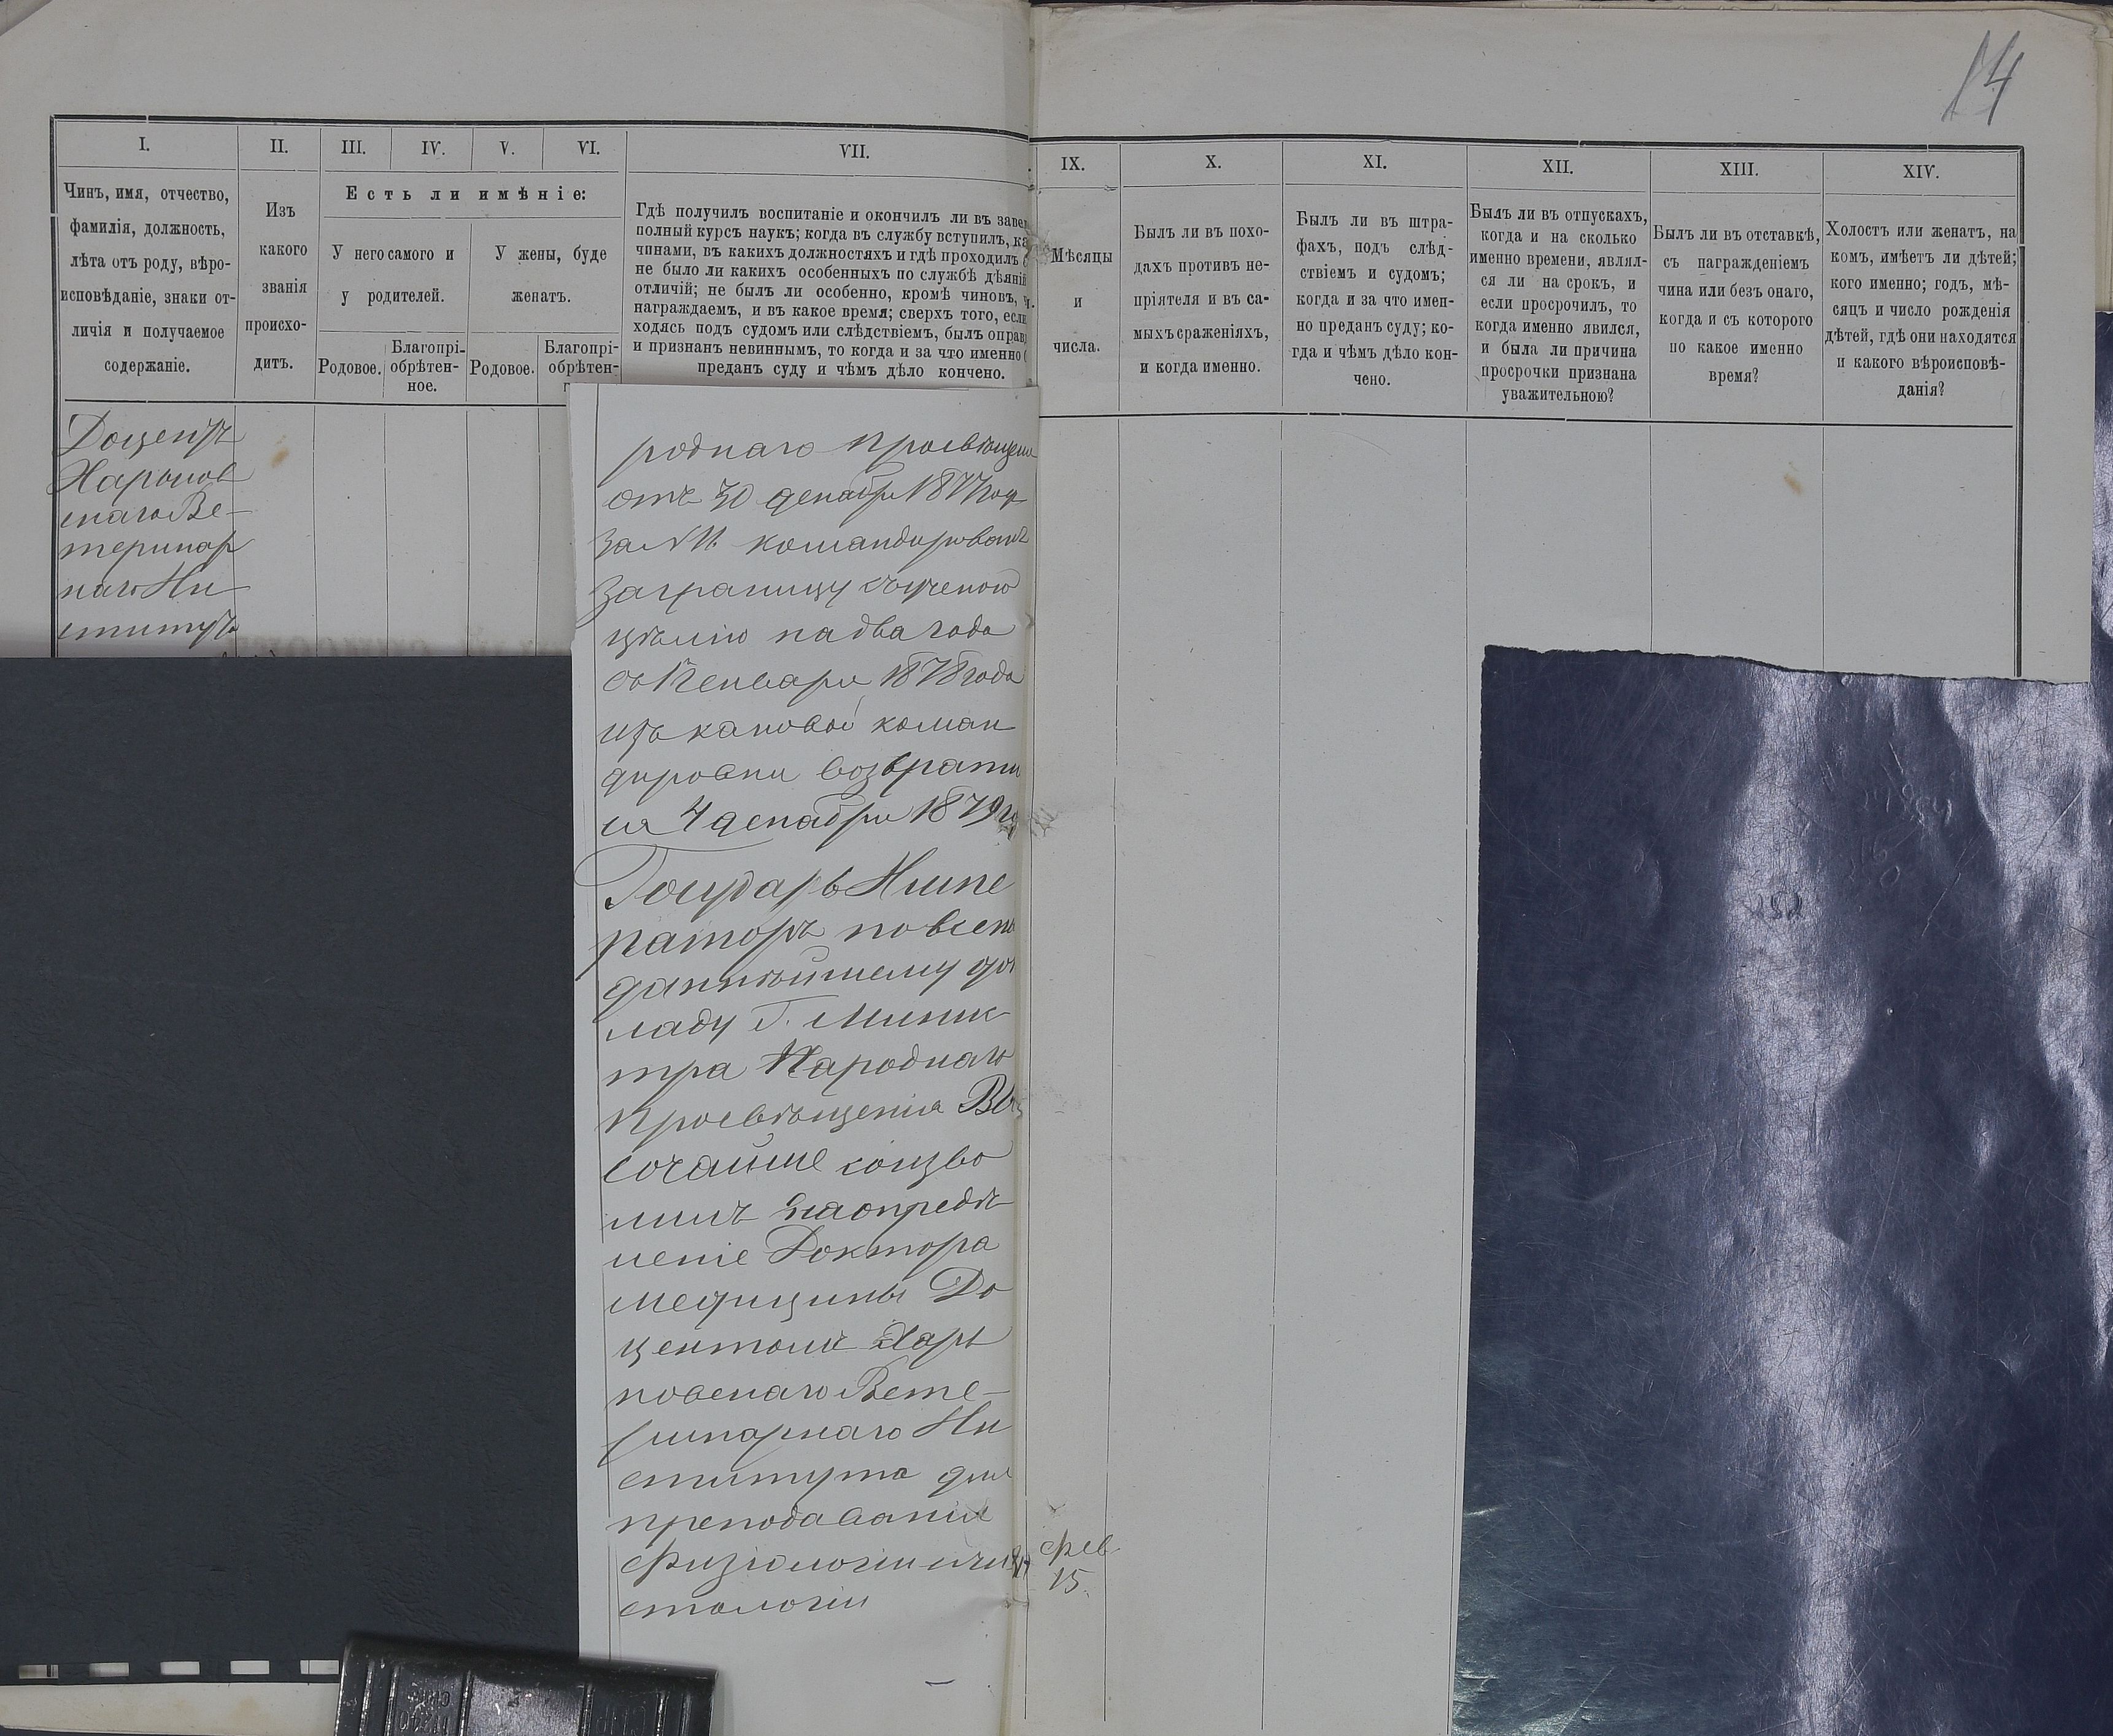 14
I.
II.
III.
IV.
V.
VI.
VII.
IX.
X.
XI.
XII.
XIII.
XIV.
Чинъ, имя, отчество,
фамилія, должность,
лѣта отъ роду, вѣро-
исповѣданіе, знаки от-
личія и получаемое
содержаніе.
Изъ
какого
званія
происхо-
дитъ.
Есть ли имѣніе:
У него самого и
у родителей.
У жены, буде
женатъ.
Родовое.
Благопрі-
обрѣтен-
ное.
Родовое.
Благопрі-
обрѣтен-
Гдѣ получилъ воспитаніе и окончилъ ли въ заве
полный курсъ наукъ; когда въ службу вступилъ, ка
чинами, въ какихъ должностяхъ и гдѣ проходилъ
не было ли какихъ особенныхъ по службѣ дѣяній
отличій; не былъ ли особенно, кромѣ чиновъ,
награждаемъ, и въ какое время; сверхъ того, если
ходясь подъ судомъ или слѣдствіемъ, былъ оправ
и признанъ невиннымъ, то когда и за что именно
преданъ суду и чѣмъ дѣло кончено.
Мѣсяцы
и
числа.
Былъ ли въ похо-
дахъ противъ не-
пріятеля и въ са-
мыхъ сраженіяхъ,
и когда именно.
Былъ ли въ штра-
фахъ, подъ слѣд-
ствіемъ и судомъ;
когда и за что имен-
но преданъ суду; ко-
гда и чѣмъ дѣло кон-
чено.
Былъ ли въ отпускахъ,
когда и на сколько
именно времени, являл-
ся ли на срокъ, и
если просрочилъ, то
когда именно явился,
и была ли причина
просрочки признана
уважительною?
Былъ ли въ отставкѣ,
съ награжденіемъ
чина или безъ онаго,
когда и съ котораго
по какое именно
время?
Холостъ или женатъ, на
комъ, имѣетъ ли дѣтей;
кого именно; годъ, мѣ-
сяцъ и число рожденія
дѣтей, гдѣ они находятся
и какого вѣроисповѣ-
данія?
Доцентъ
Харьков
скаго Ве-
теринар
наго Ин
ститута
роднаго просвѣщенія
отъ 30 декабря 1877 год
за № 11. командированъ
заграницу съ ученою
цѣлію на два года
съ 1 Генваря 1878 года
изъ каковой коман
дировки возврати
ся 4 декабря 1879 го
Государь Импе
раторъ по всепо
даннѣйшему до
кладу Г. Минис
тра Народнаго
просвѣщенія Вы
сочайше соизво
лилъ на опредѣ
леніе Доктора
медицины До
центомъ Харь
ковскаго Вете-
ринарнаго Ин
ститута для
преподаванія
физіологіи и ги
стологіи
фев
15.